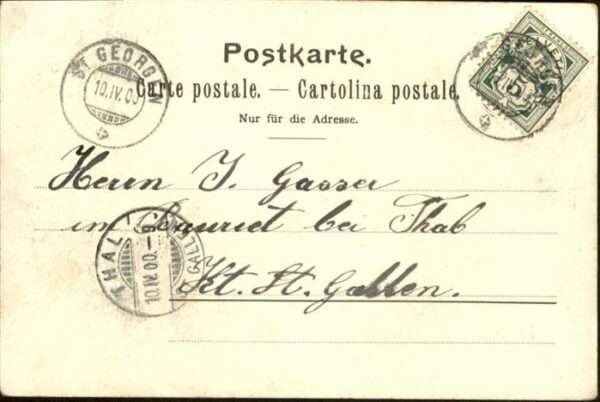 Postkarte.
Carte postale. — Cartolina postale.
Nur für die Adresse.
ST GEORGEN
10.IV.00
5
Herrn J. Gasser
im Bauriet bei Thal
Kt. St. Gallen.
THAL
10.IV.00.–9